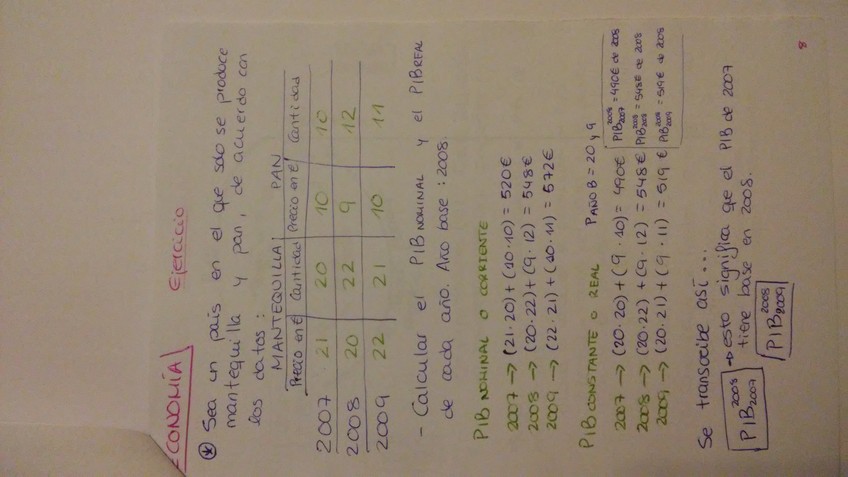 ECONOMÍA Ejercicio
* Sea un país en el que sólo se produce
mantequilla y pan, de acuerdo con
los datos:
MANTEQUILLA PAN
Precio en € Cantidad Precio en € Cantidad
2007 21 20 10 10
2008 20 22 9 12
2009 22 21 10 11
- Calcular el PIB NOMINAL y el PIB REAL
de cada año. Año base: 2008.
PIB NOMINAL O CORRIENTE
2007 → (21·20)+(10·10) = 520€
2008 → (20·22)+(9·12) = 548€
2009 → (22·21)+(10·11) = 572€
PIB CONSTANTE O REAL PAÑO B = 20 y 9
2007 → (20·20)+(9·10) = 490€ PIB 2008 2007 = 490€ de 2008
2008 → (20·22)+(9·12) = 548€ PIB 2008 2008 = 548€ de 2008
2009 → (20·21)+(9·11) = 519€ PIB 2008 2009 = 519€ de 2008
Se transcribe así...
PIB 2008 2007 → esto significa que el PIB de 2007
tiene base en 2008.
PIB 2008 2009
8